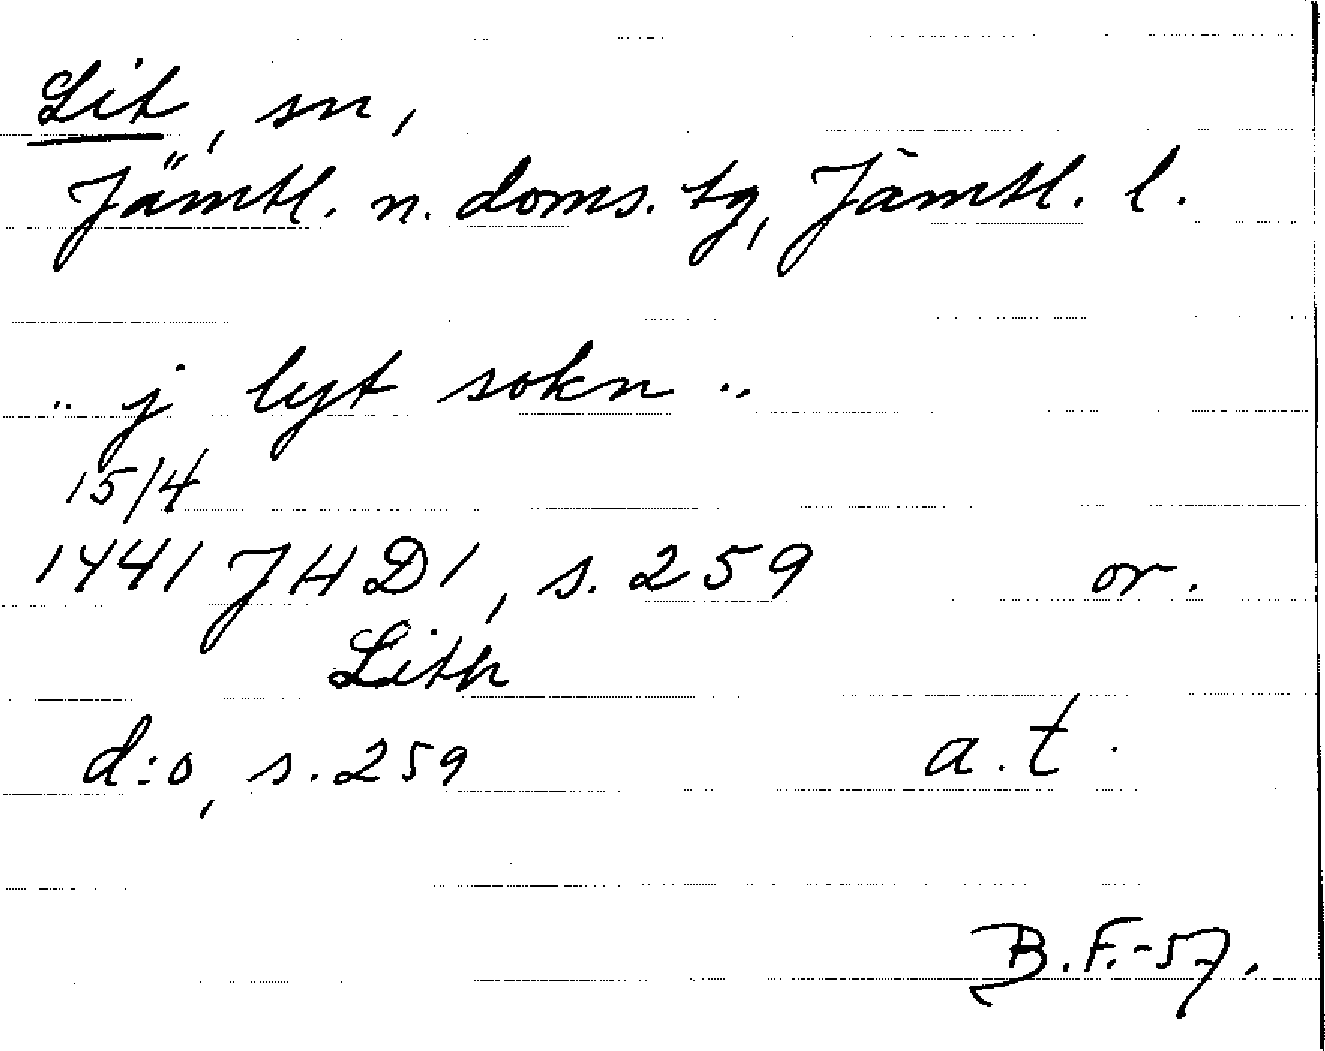 Lit, sn,
Jämtl. n. doms. tg, Jämtl. l.
.. j lyt sokn ..
15/4
1441 JHD1, s. 259 or.
Lith
d:o, s. 259 a.t.
B.F.-57.